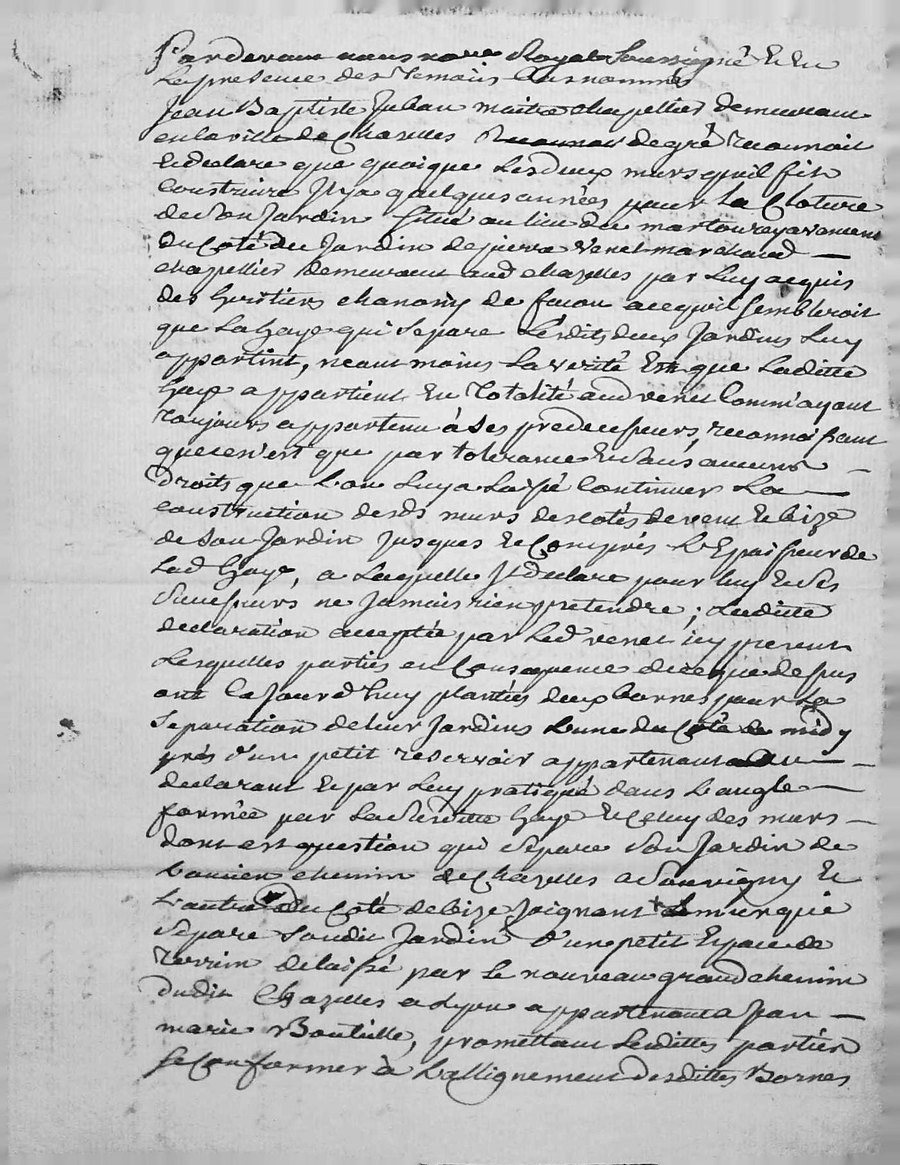 Pardevant nous no.re Royal Soussigné Et En
Le presence des Temoins Bas nommes
Jean Baptiste Juban maitre chapellier demeurant
en la ville de Chazelles de gré reconnoit
Et declare que quoique Les deux murs quil fit
Construire Il y a quelques années pour La Cloture
de Son Jardin Situé au lieu du martourey avenant
du Coté du Jardin de pierre Venet marchand
chapellier demeurant aud chazelles par Luy acquis
des heritiers chanony de facon acequil sembleroit
que La haye qui Separe Lesdits deux Jardins Luy
appartint, neant moins La verité Est que Laditte
haye appartient En Totalité aud venet Comm'ayant
Toujours appartenu à Ses predecesseurs, reconnoissant
que cen'est que par tolerance Et Sans aucuns
droits que L'on Luy a Laissé Continuer La
construction desds murs des cotés de vent Et bize
de Son Jardin Jusques Et Compris L'Epaisseur de
Lad haye, a Laquelle Il declare pour luy Et Ses
Successeurs ne Jamais rien pretendre ; Laditte
declaration acceptée par Led venet icy present
Lesquelles parties en Consequence de ce que dessus
ont Cejourd'huy plantés deux bornes pour La
Separation de leur Jardins L'une du Coté de midy
près d'un petit reservoir appartenant au
declarant Et par Luy pratiqué dans L'angle
formée par La Sus ditte haye Et Celuy des murs
dont est question qui Separe Son Jardin de
L'ancien chemin de Chazelles a Souvigny Et
L'autre du Coté de bize Joignant Le mur qui
Separe Sondit Jardin d'un petit Espace de
Terrein delaissé par Le nouveau grand chemin
dudit Chazelles a Lyon appartenant a Jean
marie Bouteille, promettant Lesdittes parties
se Conformer à L'allignement desdittes Bornes